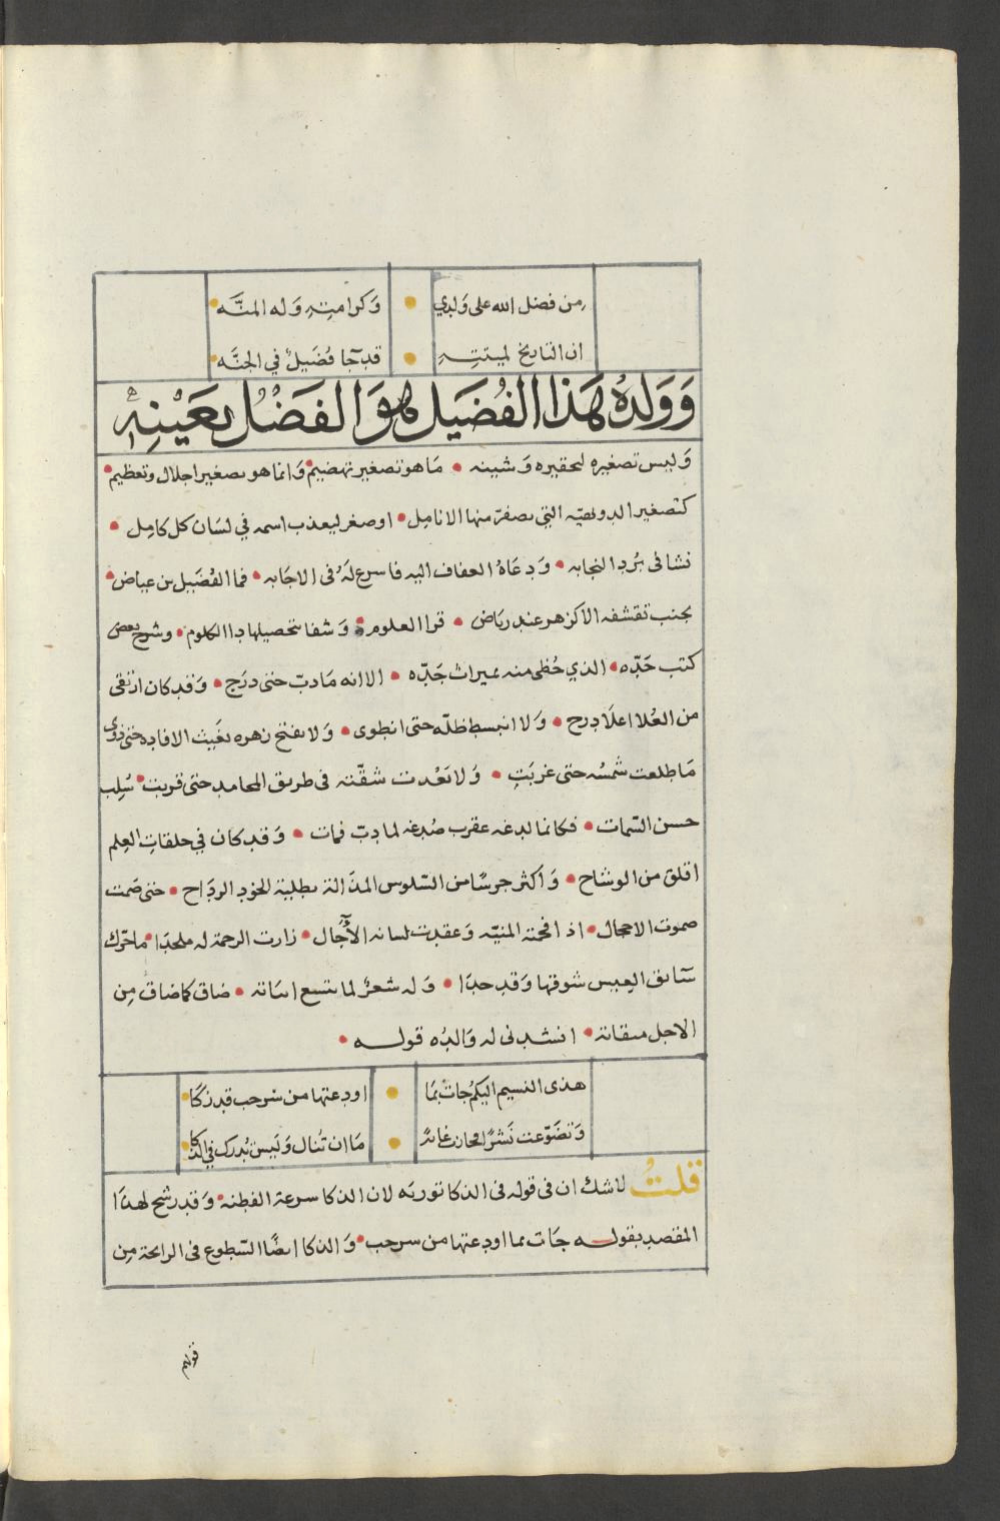 من فضل الله على ولدي • وكرامته وله المنَّه
ان التاريخ لميتته • قد جا فُضَيلٌ في الجنَّه
وَوَلدهُ هَذا الفُضَيل هوَ الفَضْلُ بعَيْنِهِ
وَليس تصغيره لتحقيره وَشينه • مَا هو تصغير تهضيم • وَانما هو تصغير اجلال وتعظيم •
كتصغير الدويهيّه التي تصفرّ منها الانامِل • او صغر ليعذب اسمه في لسَان كل كامِل •
نشا في بُرد النجابه • وَدعَاهُ العفاف اليه فاسرع لَهُ في الاجَابه • فما الفُضَيل بن عياض •
بجنب تقشفه الا كزهر عند ريَاض • قرا العلوم • وَشفا بتحصيلها دا الكلوم • وشرح بعض
كتب جَدّه • الذي حُظي منه بميراث جَدّه • الا انه مَا دبّ حتى درَج • وَقد كان ارتقى
من العُلا اعلَا درج • وَلا انبسط ظلّه حتى انطوى • وَلا تفتح زهره بغَيث الافاده حتى ذوى
مَا طلعت شمسُه حتى غربَت • وَلا بَعُدت شقّته في طريق المحامد حتى قربت • سُلِب
حسن السمات • فكانما لدغه عقرب صُدغه لما دبّ فمات • وَقد كان في حلقات العِلم
اقلق من الوشاح • وَاكثر جرسًا من السّلوس المذالة بطلية الخود الردَاح • حتى صَمت
صموت الاحجال • اذ افحمته المنيّه وَعقدت لسانه الآجال • زارت الرحمة له ملحدًا • ما حرّك
سَائق العِيس شوقها وَقد حدَا • وَله شعرٌ لما يتسع ابياته • ضاق كما ضاق مِن
الاجل ميقاته • انشدني له وَالدُه قولـــه •
هذى النسيم اليكمُ جاتْ بمَا • اودعتها من سرحب قد زكَا
وَتضَوّعت نَشرًا فحازت غايةً • مَا ان تُنال وَليسَ يُدرك في الذكا
قلتُ لا شك ان في قوله في الذكا توريه لان الذكا سرعة الفطنه • وَقد رشح لهذا
المقصد بقولـــه جَات مما اودعتها من سرحب • وَالذكا ايضًا السّطوع في الرائحة مِن
قولهم